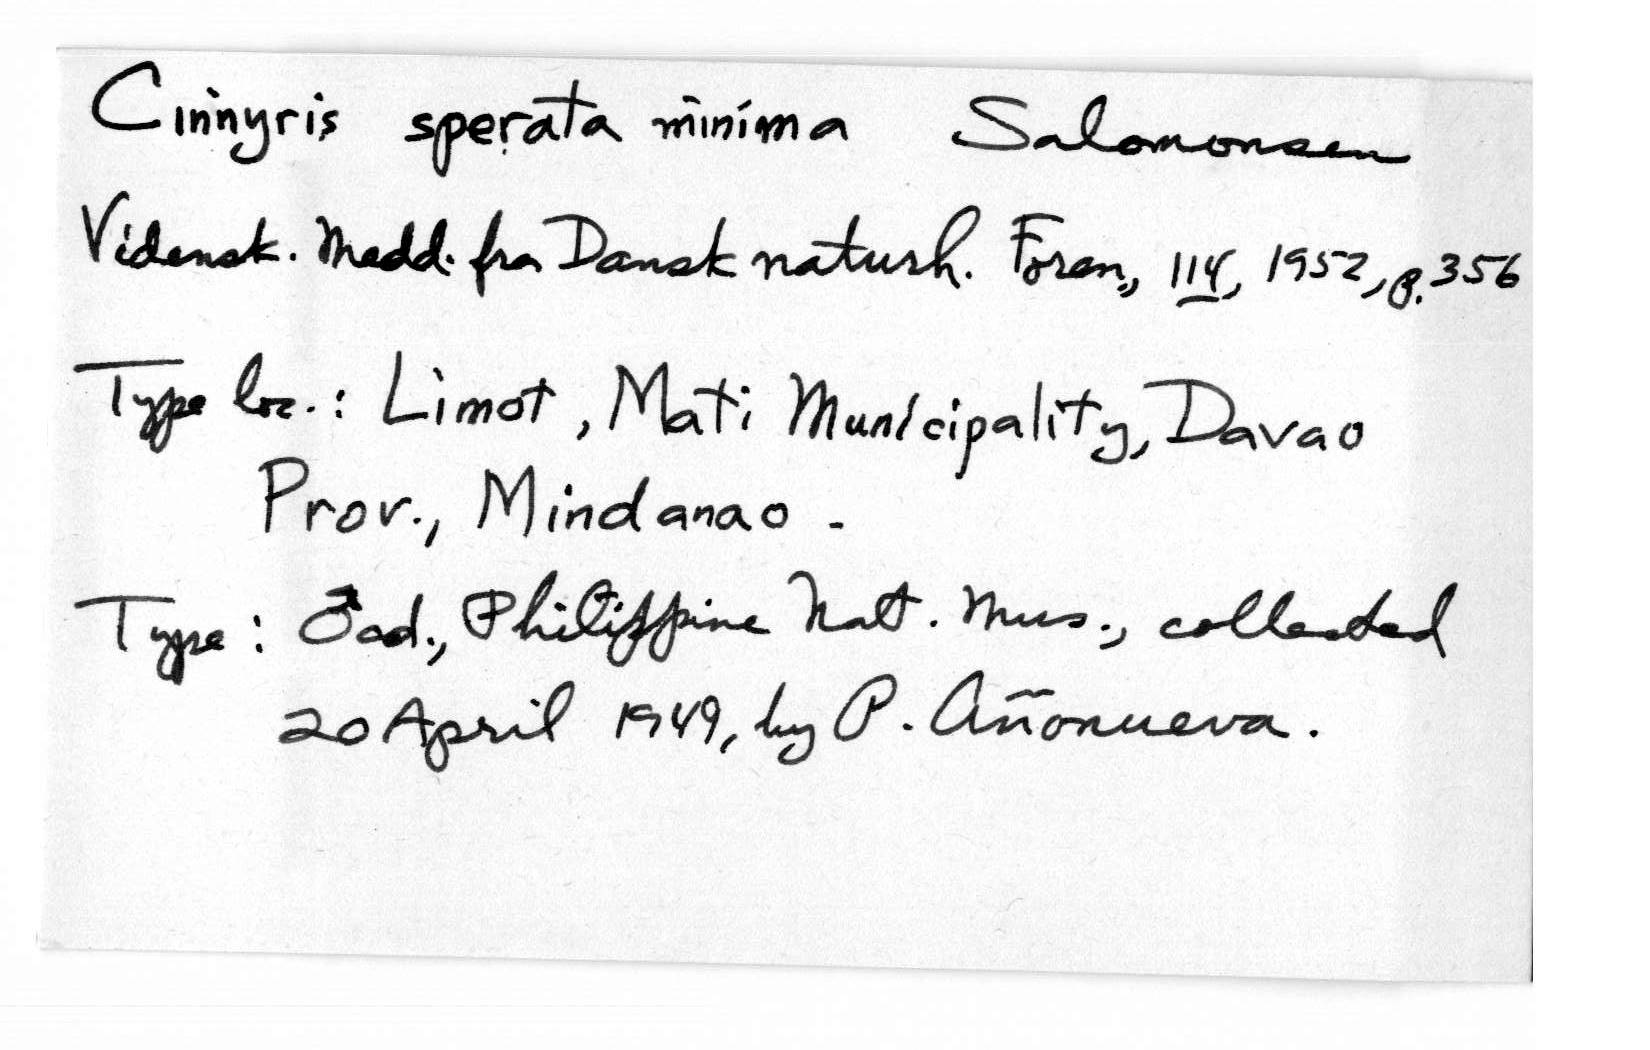 Cinnyris sperata minima Salomonsen
Vidensk. Medd. fra Dansk naturh. Foren., 114, 1952, p. 356
Type loc.: Limot, Mati Municipality, Davao
Prov., Mindanao.
Type: ♂ad., Philippine Nat. Mus., collected
20 April 1949, by P. Añonueva.